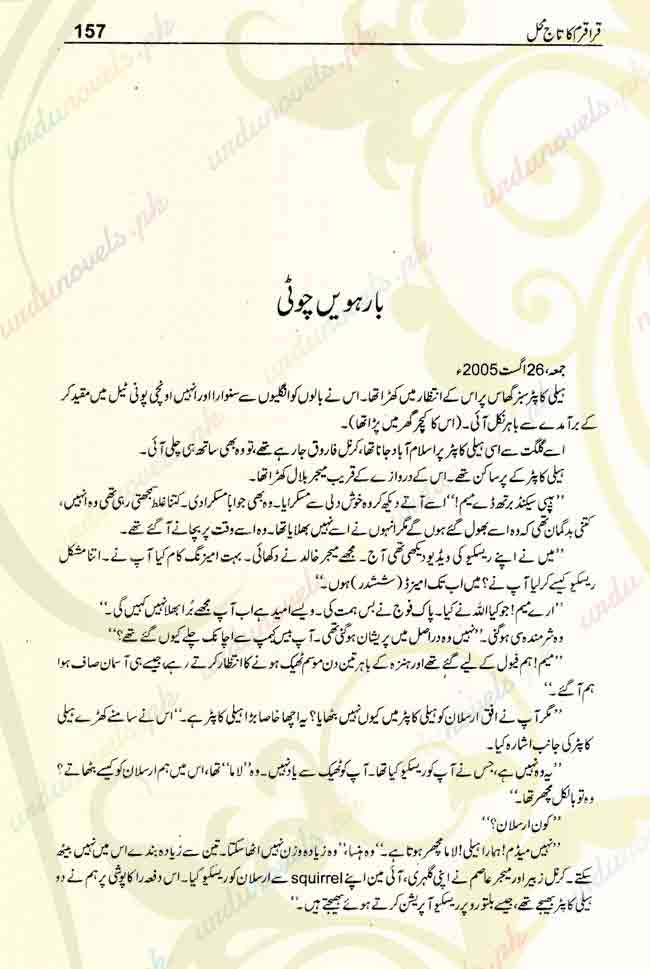 157
قراقرم کا تاج محل
بارہویں چوٹی
جمعہ، 26 اگست 2005ء
ہیلی کاپٹر سبز گھاس پر اس کے انتظار میں کھڑا تھا۔ اس نے بالوں کو انگلیوں سے سنوارا اور انہیں اونچی پونی ٹیل میں مقید کر
کے برآمدے سے باہر نکل آئی۔ (اس کا کیچر گھر میں پڑا تھا)۔
اسے گلگت سے اسی ہیلی کاپٹر پر اسلام آباد جانا تھا، کرنل فاروق جا رہے تھے، تو وہ بھی ساتھ ہی چلی آئی۔
ہیلی کاپٹر کے پر ساکن تھے۔ اس کے دروازے کے قریب میجر بلال کھڑا تھا۔
’’ہیپی سیکنڈ برتھ ڈے میم!‘‘ اسے آتے دیکھ کر وہ خوش دلی سے مسکرایا۔ وہ بھی جواباً مسکرا دی۔ کتنا غلط سمجھتی رہی تھی وہ انہیں،
کتنی بدگمان تھی کہ وہ اسے بھول گئے ہوں گے مگر انہوں نے اسے نہیں بھلایا تھا۔ وہ اسے وقت پر بچانے آ گئے تھے۔
’’میں نے اپنے ریسکیو کی ویڈیو دیکھی تھی آج۔ مجھے میجر خالد نے دکھائی۔ بہت امیزنگ کام کیا آپ نے۔ اتنا مشکل
ریسکیو کیسے کر لیا آپ نے؟ میں اب تک امیزڈ (ششدر) ہوں۔‘‘
’’ارے میم! جو کیا اللہ نے کیا۔ پاک فوج نے بس ہمت کی۔ ویسے امید ہے اب آپ مجھے بُرا بھلا نہیں کہیں گی۔‘‘
وہ شرمندہ سی ہو گئی۔ ’’نہیں وہ دراصل میں پریشان ہو گئی تھی۔ آپ بیس کیمپ سے اچانک چلے کیوں گئے تھے؟‘‘
’’میم! ہم فیول کے لیے گئے تھے اور ہنزہ کے باہر تین دن موسم ٹھیک ہونے کا انتظار کرتے رہے، جیسے ہی آسمان صاف ہوا
ہم آ گئے۔‘‘
’’مگر آپ نے افق ارسلان کو ہیلی کاپٹر میں کیوں نہیں بٹھایا؟ یہ اچھا خاصا بڑا ہیلی کاپٹر ہے۔‘‘ اس نے سامنے کھڑے ہیلی
کاپٹر کی جانب اشارہ کیا۔
’’یہ وہ نہیں ہے، جس نے آپ کو ریسکیو کیا تھا۔ آپ کو ٹھیک سے یاد نہیں۔ وہ ’’لاما‘‘ تھا، اس میں ہم ارسلان کو کیسے بٹھاتے؟
وہ تو بالکل مچھر تھا۔‘‘
’’کون ارسلان؟‘‘
’’نہیں میڈم! ہمارا ہیلی! لاما مچھر ہوتا ہے۔‘‘ وہ ہنسا، ’’وہ زیادہ وزن نہیں اٹھا سکتا۔ تین سے زیادہ بندے اس میں نہیں بیٹھ
سکتے۔ کرنل زبیر اور میجر عاصم نے اپنی گلہری، آئی مین اپنے squirrel سے ارسلان کو ریسکیو کیا۔ اس دفعہ راکاپوشی پر ہم نے دو
ہیلی کاپٹر بھیجے تھے، جیسے بلتورو پر ریسکیو آپریشن کرتے ہوئے بھیجتے ہیں۔‘‘
urdunovels.pk